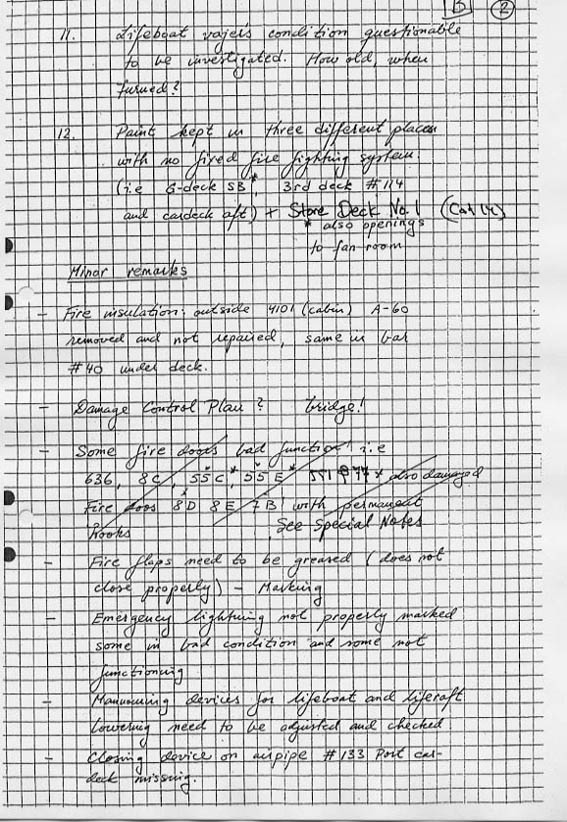 B 2
11. Lifeboat vajers condition questionable
to be investigated. How old, when
turned?
12. Paint kept in three different places
with no fixed fire fighting system.
(i.e 8-deck SB*, 3rd deck #114
and cardeck aft) + Store Deck No.1 (Cat 14)
* also openings
to fan room
Minor remarks
- Fire insulation: outside 4101 (cabin) A-60
removed and not repaired, same in bar
#40 under deck.
- Damage Control Plan? bridge!
- Some fire doors bad function! i.e
636, 8C, 55C*, 55E* * also damaged
Fire doos 8D 8E 7B with permanent
hooks See Special Notes
- Fire flaps need to be greased (does not
close properly) - Marking
- Emergency lightning not properly marked
some in bad condition and some not
functioning
- Manouvring devices for lifeboat and liferaft
lowering need to be adjusted and checked
- Closing device on airpipe #133 Port car-
deck missing.